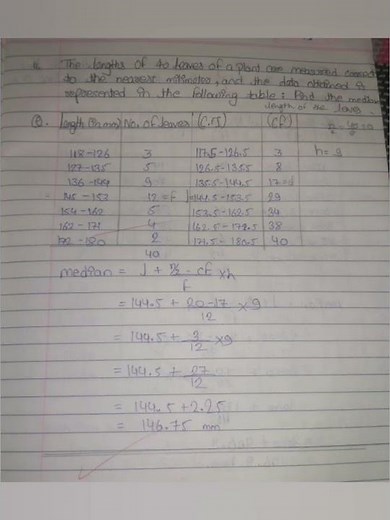 The lengths of 40 leaves of a plant are measured correct
to the nearest milimeter, and the data obtained is
represented in the following table: Find the median
length of the leaves.
Q. length (in mm) No. of leaves (C.I) (CF) n/2 = 40 = 20
118-126 3 117.5-126.5 3 h= 9
127-135 5 126.5-135.5 8
136-144 9 135.5-144.5 17=cf
145-153 12=f l=144.5-153.5 29
154-162 5 153.5-162.5 34
162-171 4 162.5-171.5 38
172-180 2 171.5-180.5 40
40
median = l + n/2 - cf / f × h
= 144.5 + 20-17 / 12 × 9
= 144.5 + 3/12 × 9
= 144.5 + 27/12
= 144.5 + 2.25
= 146.75 mm